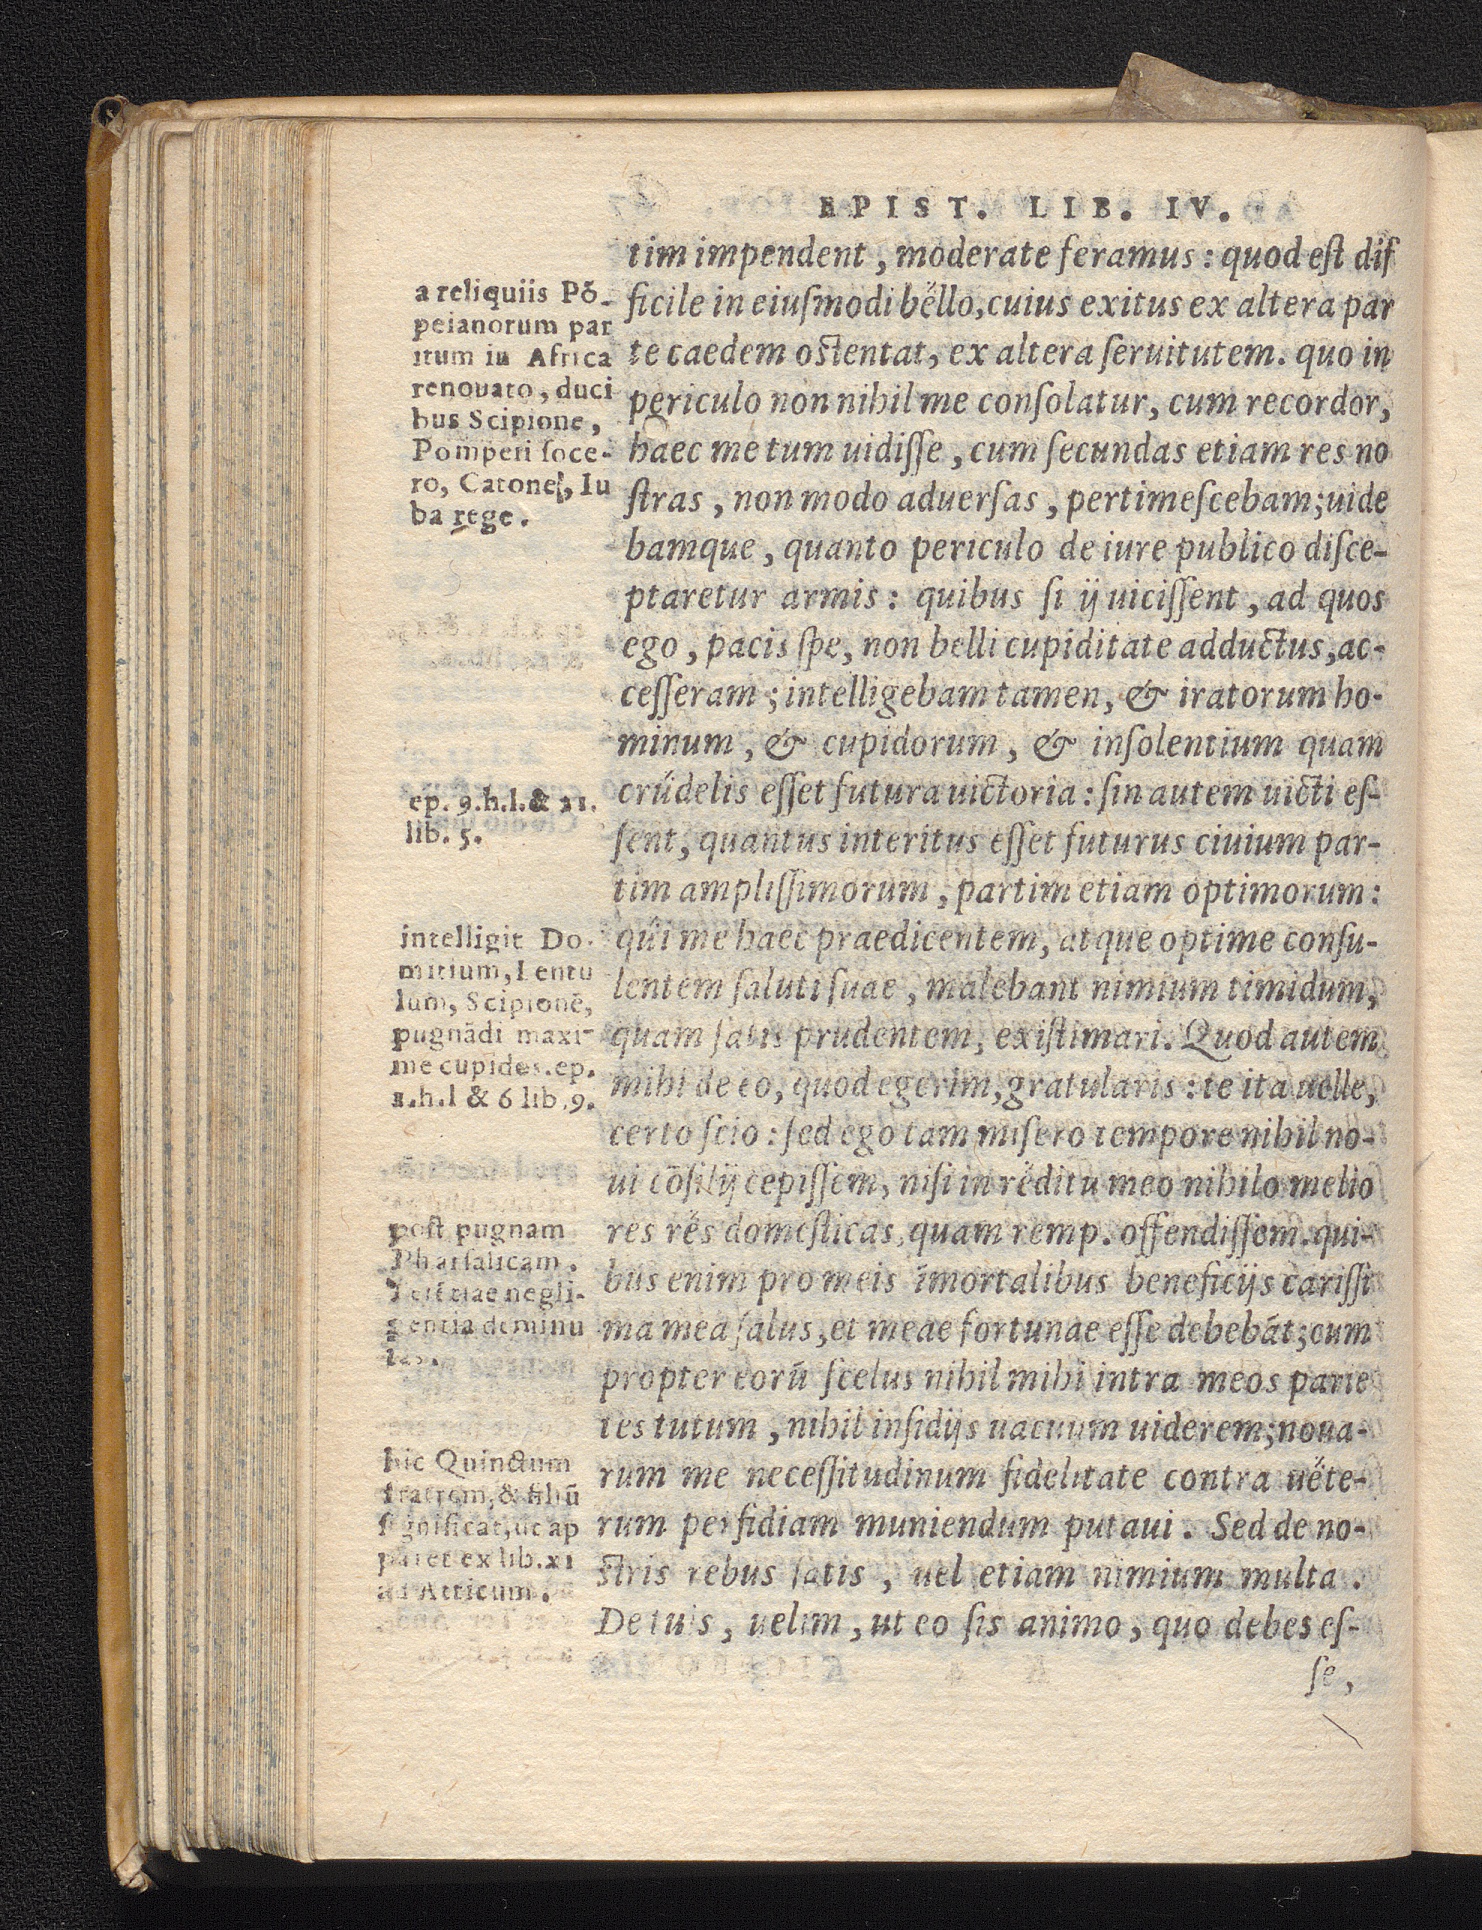 EPIST. LIB. IV.
tim impendent, moderate feramus: quod est dif
ficile in eiusmodi bello, cuius exitus ex altera par
te caedem ostentat, ex altera seruitutem. quo in
periculo non nihil me consolatur, cum recordor,
haec me tum uidisse, cum secundas etiam res no
stras, non modo aduersas, pertimescebam; uide
bamque, quanto periculo de iure publico disce-
ptaretur armis: quibus si ij uicissent, ad quos
ego, pacis spe, non belli cupiditate adductus, ac-
cesseram; intelligebam tamen, & iratorum ho-
minum, & cupidorum, & insolentium quam
crudelis esset futura uictoria: sin autem uicti es-
sent, quantus interitus esset futurus ciuium par-
tim amplissimorum, partim etiam optimorum:
qui me haec praedicentem, atque optime consu-
lentem saluti suae, malebant nimium timidum,
quam satis prudentem, existimari. Quod autem
mihi de eo, quod egerim, gratularis: te ita uelle,
certo scio: sed ego tam misero tempore nihil no-
ui cōsilij cepissem, nisi in reditu meo nihilo melio
res res domesticas, quam remp. offendissem. qui-
bus enim pro meis īmortalibus beneficijs carissi
ma mea salus, et meae fortunae esse debebāt; cum
propter eorū scelus nihil mihi intra meos parie
tes tutum, nihil insidijs uacuum uiderem; noua-
rum me necessitudinum fidelitate contra uete-
rum perfidiam muniendum putaui. Sed de no-
stris rebus satis, uel etiam nimium multa.
De tuis, uelim, ut eo sis animo, quo debes es-
se,
a reliquiis Pō-
peianorum par
itum in Africa
renouato, duci
bus Scipione,
Pompeii soce-
ro, Catone, Iu
ba rege.
ep. 9.h.l.& 21.
lib. 5.
intelligit Do-
mitium, Lentu
lum, Scipionē,
pugnādi maxi-
me cupidos. ep.
1.h.l & 6 lib.9.
post pugnam
Pharsalicam.
negli-
gentia deminu
tas.
hic Quinctum
fratrem, & filiū
significat, ut ap
paret ex lib. xi
ad Atticum.